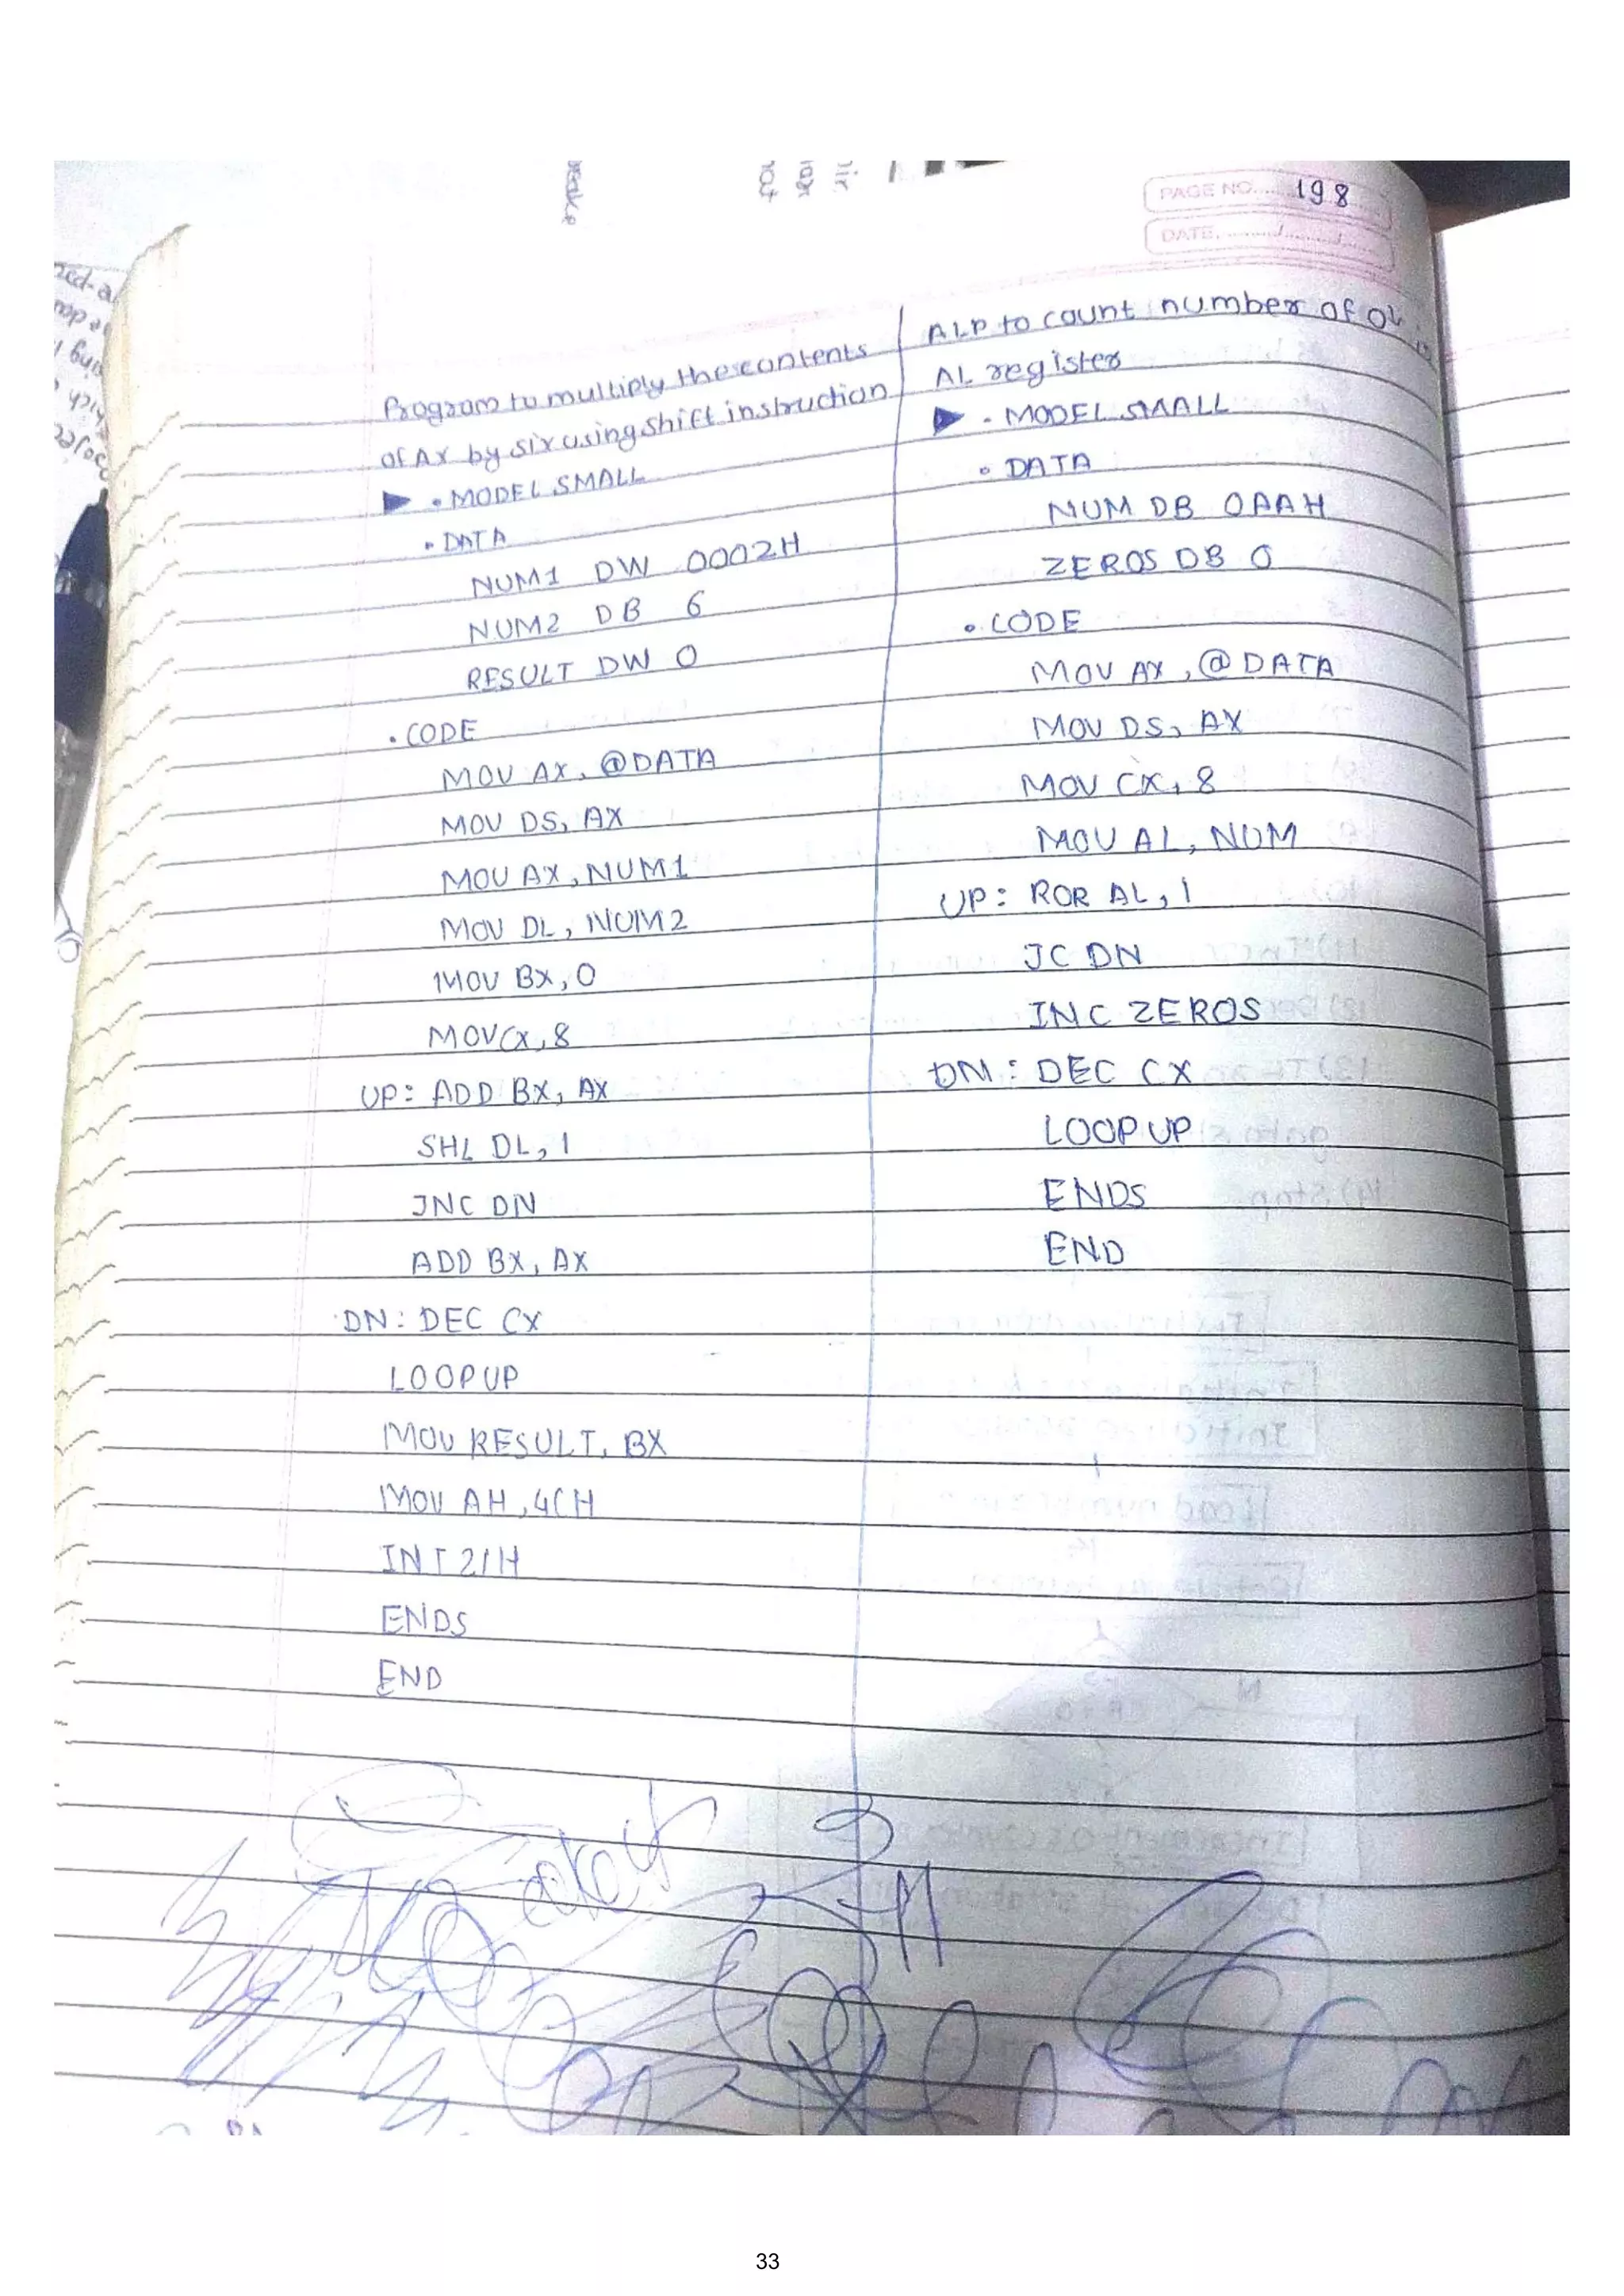 PAGE NO. 198
DATE. / /
Program to multiply the contents
of AX by six using shift instruction
• MODEL SMALL
• DATA
NUM1 DW 0002H
NUM2 DB 6
RESULT DW 0
• CODE
MOV AX, @DATA
MOV DS, AX
MOV AX, NUM1
MOV DL, NUM2
MOV BX, 0
MOV CX, 8
UP: ADD BX, AX
SHL DL, 1
JNC DN
ADD BX, AX
DN: DEC CX
LOOP UP
MOV RESULT, BX
MOV AH, 4CH
INT 21H
ENDS
END
ALP to count number of 0 in
AL register
• MODEL SMALL
• DATA
NUM DB 0AAH
ZEROS DB 0
• CODE
MOV AX, @DATA
MOV DS, AX
MOV CX, 8
MOV AL, NUM
UP: ROR AL, 1
JC DN
INC ZEROS
DN: DEC CX
LOOP UP
ENDS
END
33